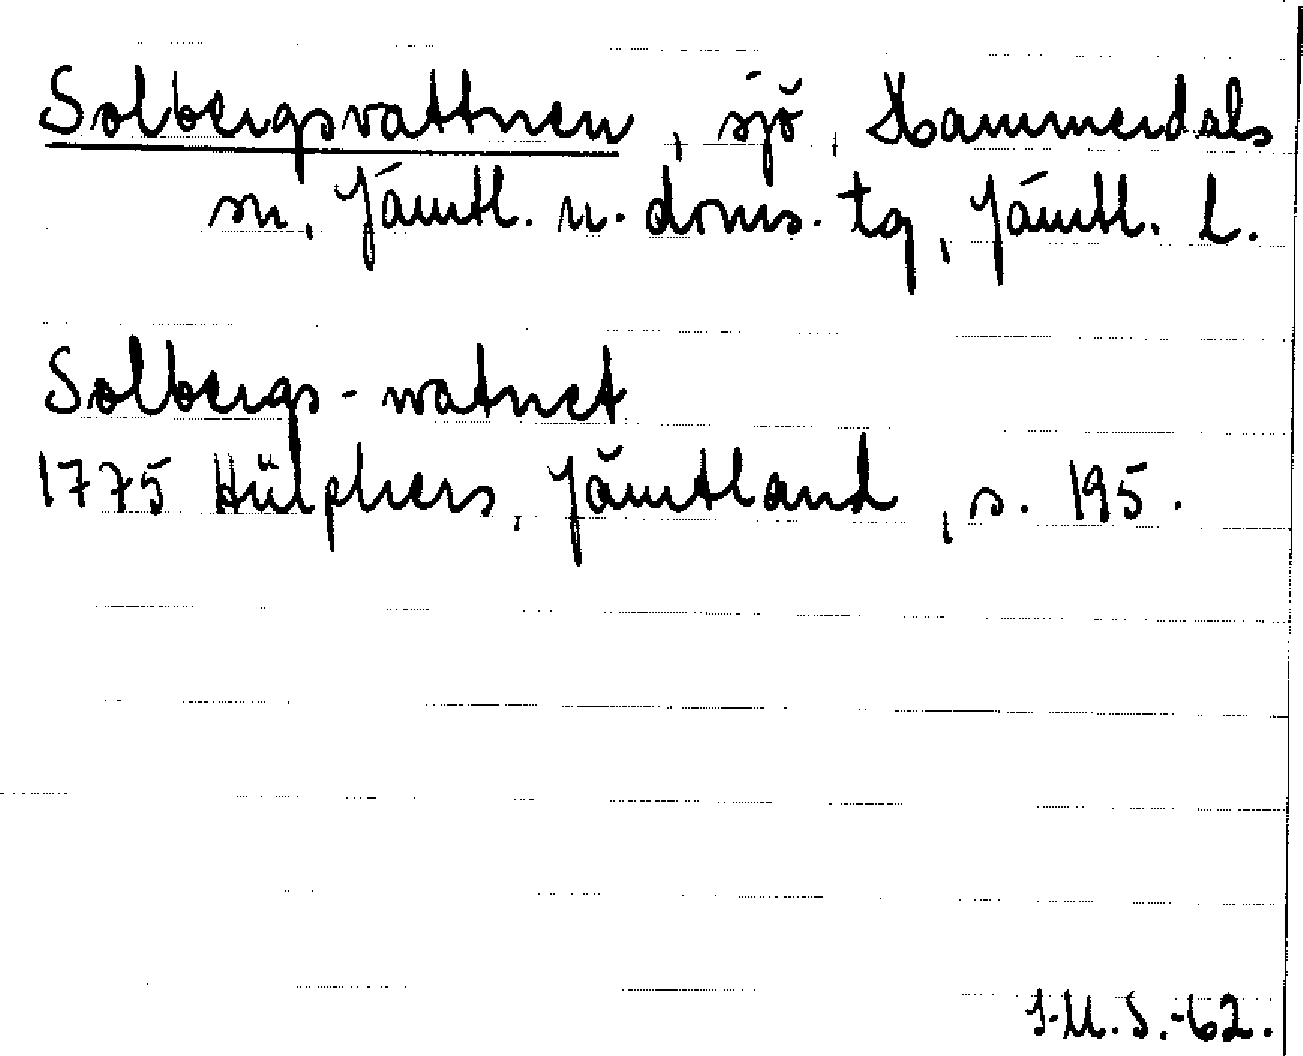 Solbergsvattnen, sjö, Hammerdals
sn, Jämtl. n. doms. tg, Jämtl. l.
Solbergs-watnet
1775 Hülphers, Jämtland, s. 195.
J.U.S.-62.